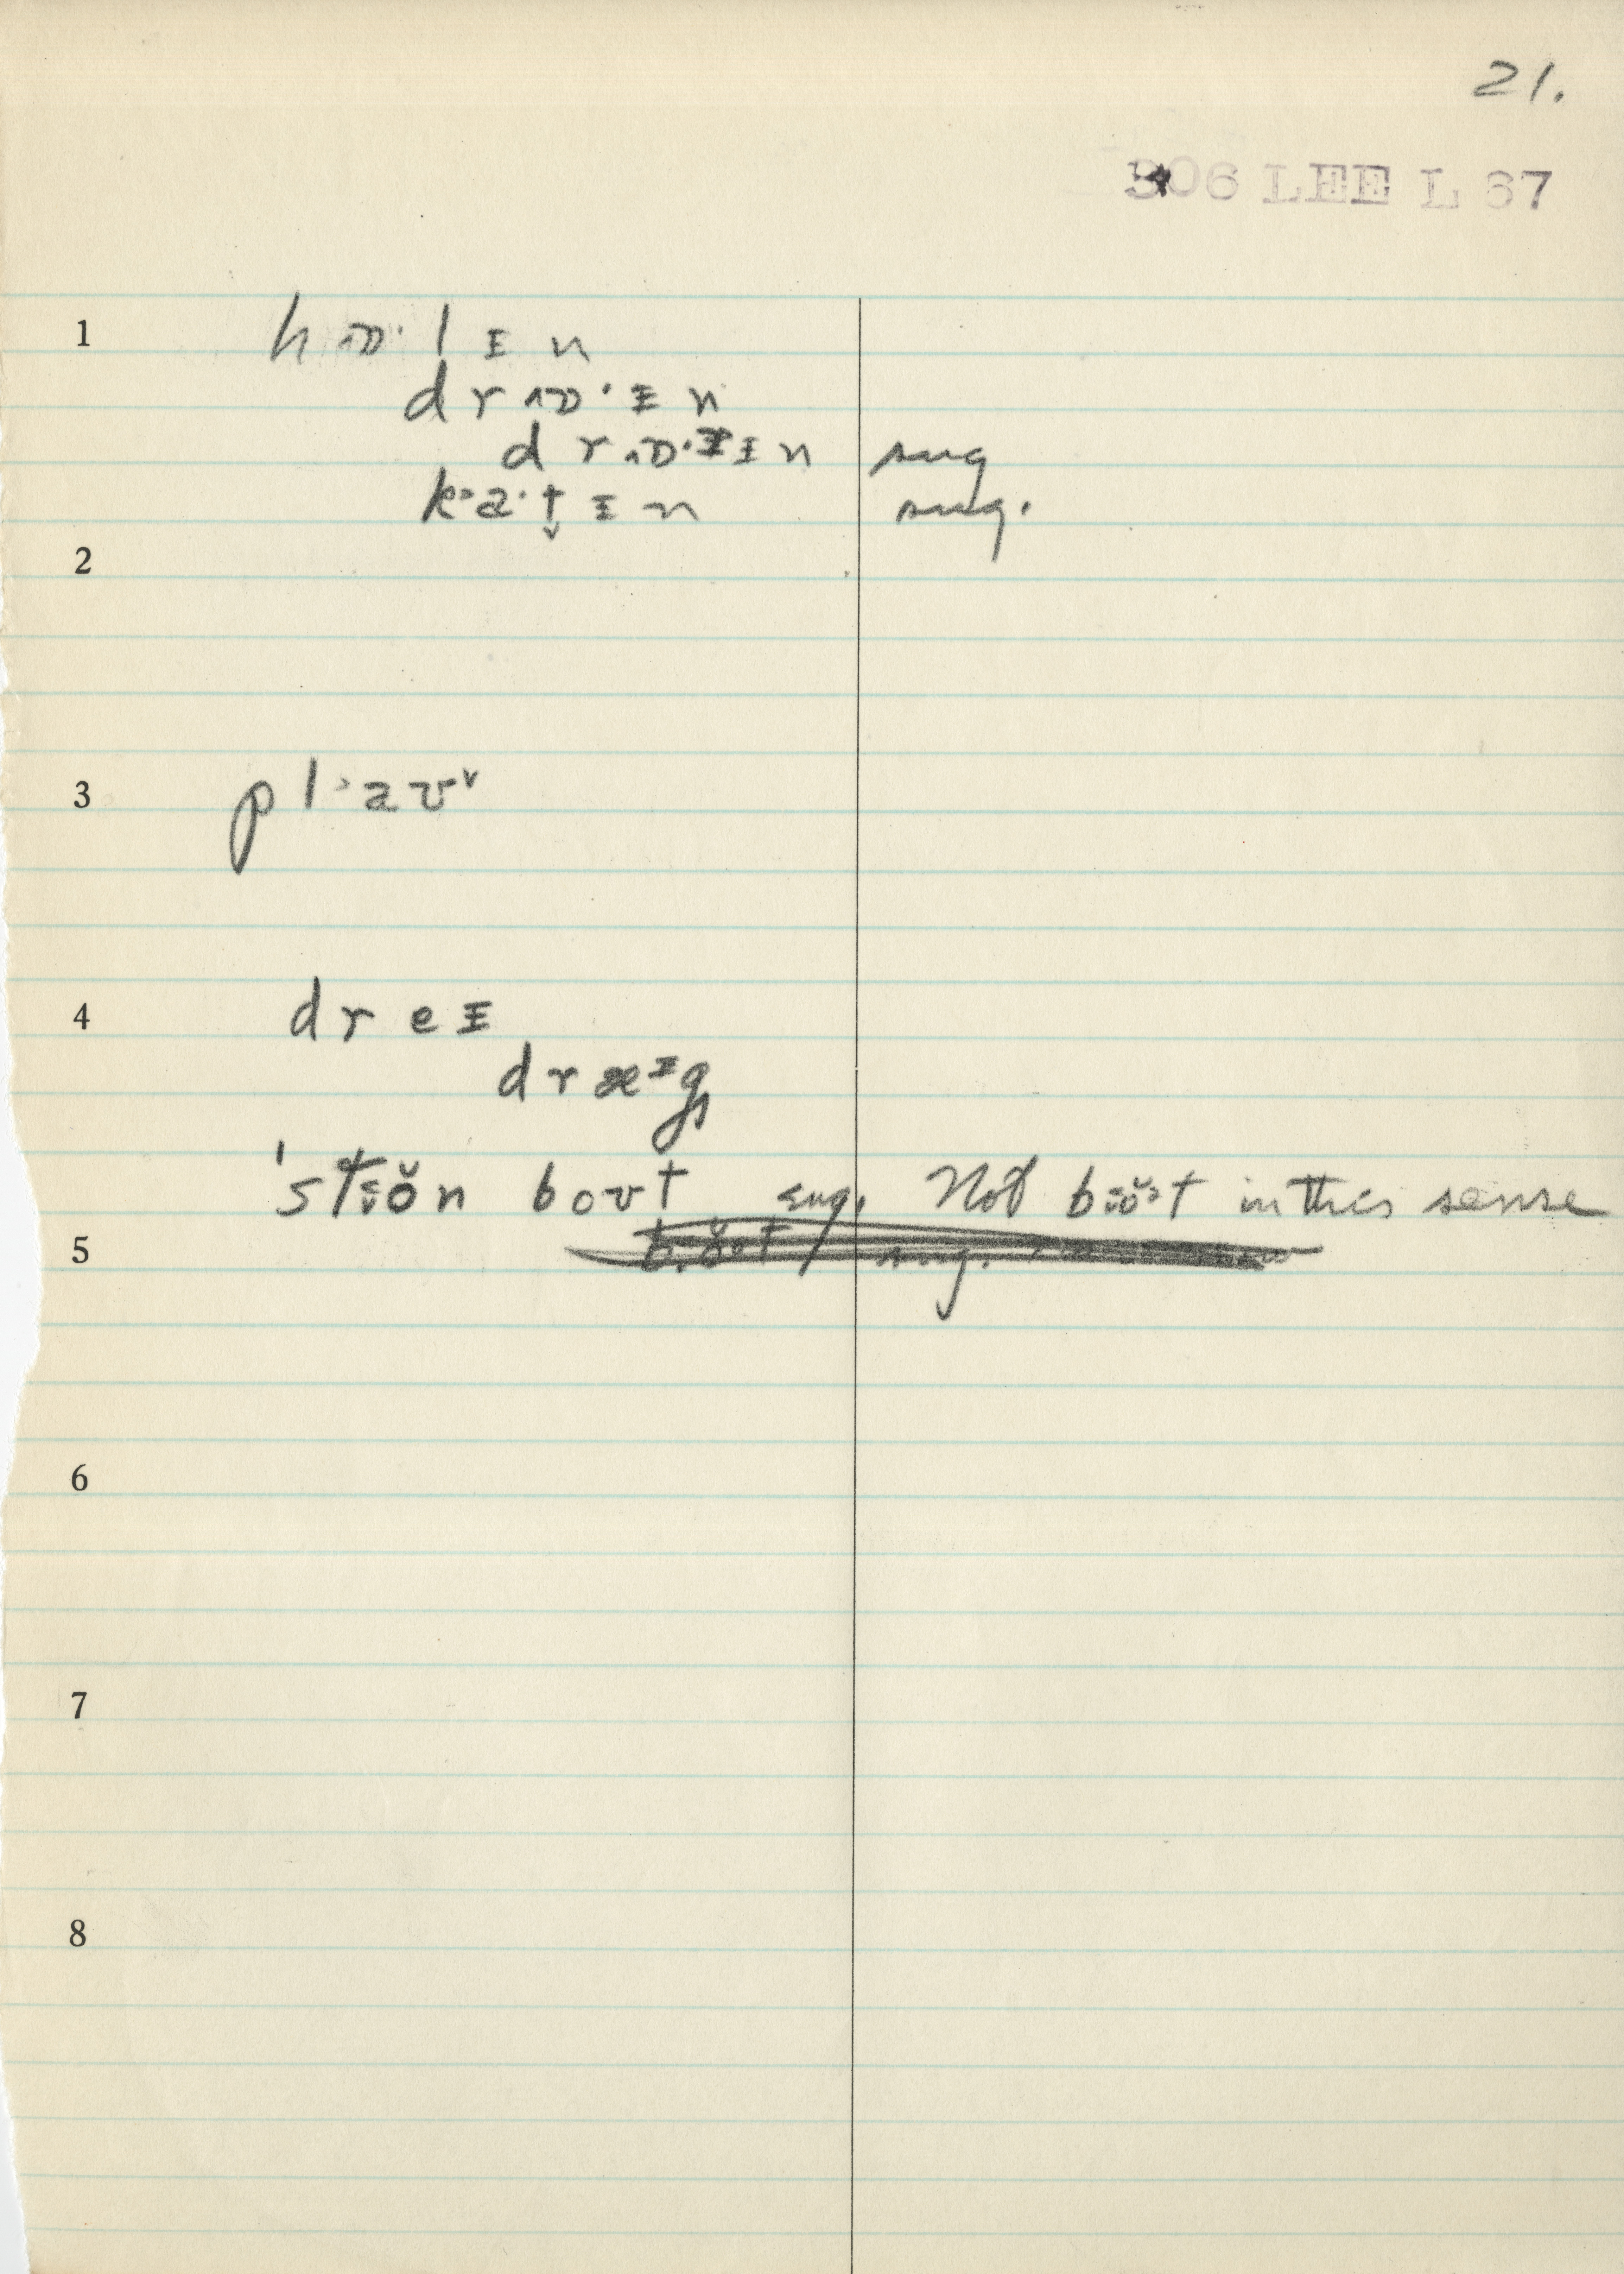 21.
306 LEE L 67
1 hɒ·lɪn
drɒ·ɪn
drɒ·ɪn sug
kʻa·t̬ɪn sug.
2
3 pl·aʊ˅
4 dreɪ
dræᶦg
'stɪŏn boʊt sug. Not bɪŏᵊt in this sense
5 sug.
6
7
8